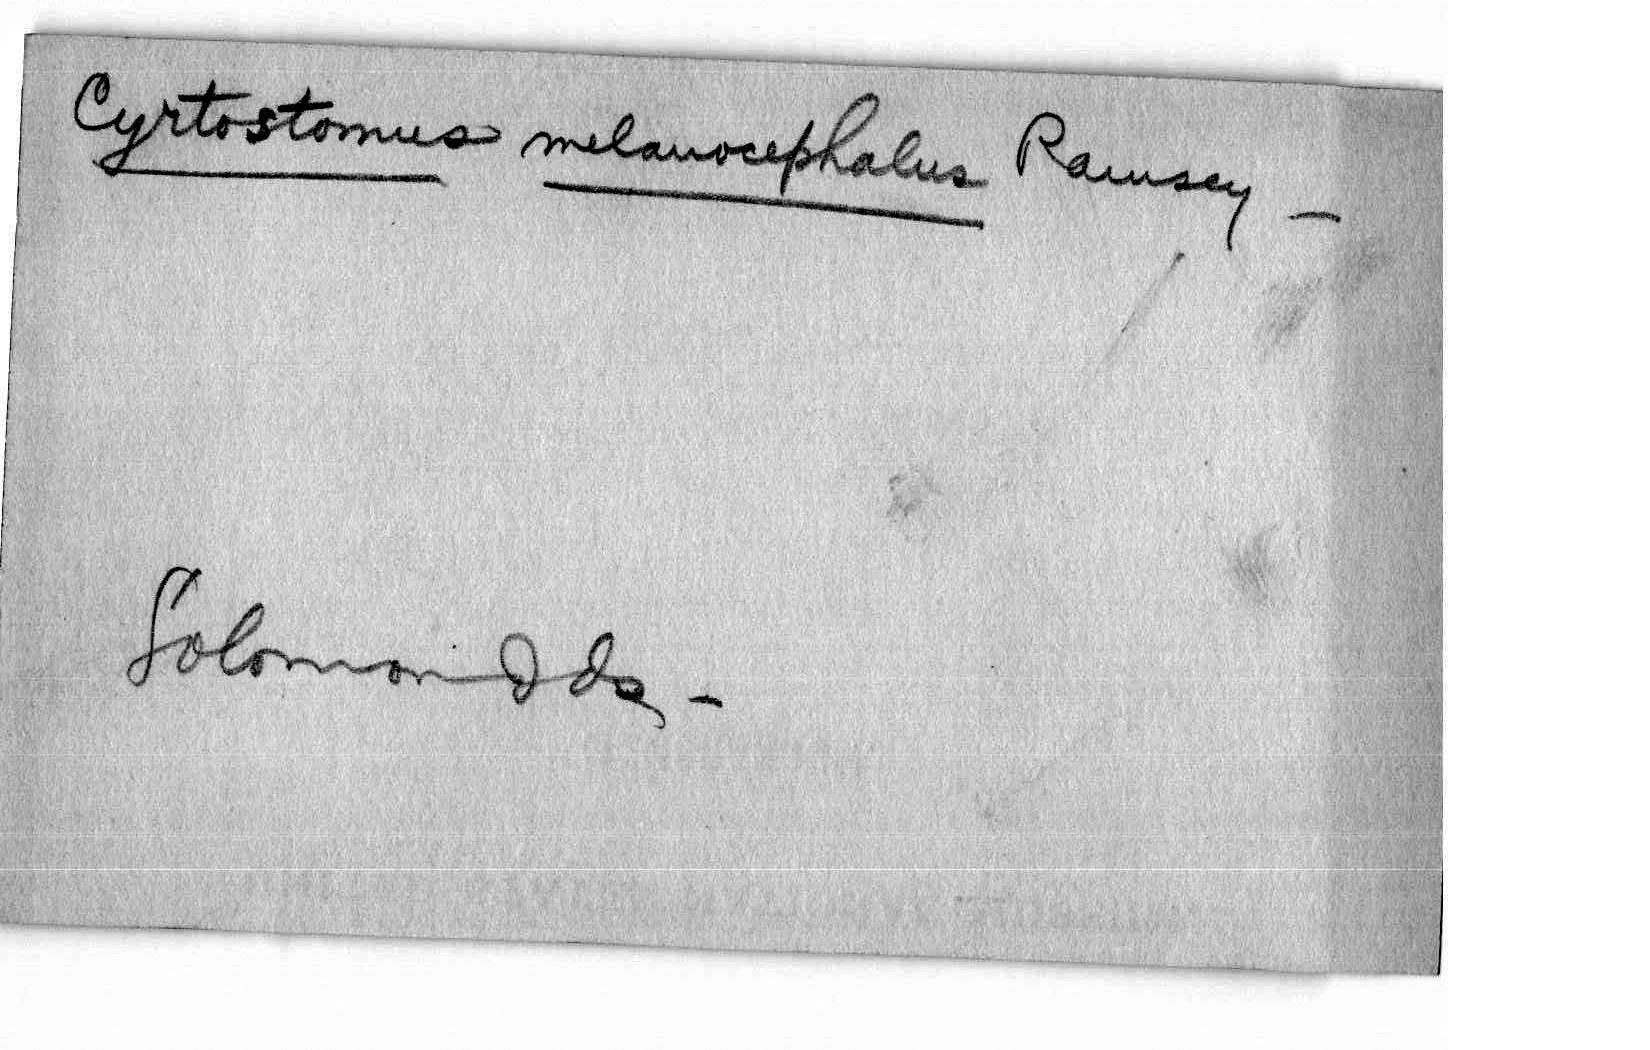 Cyrtostomus melanocephalus Ramsey –
Solomon Ids –